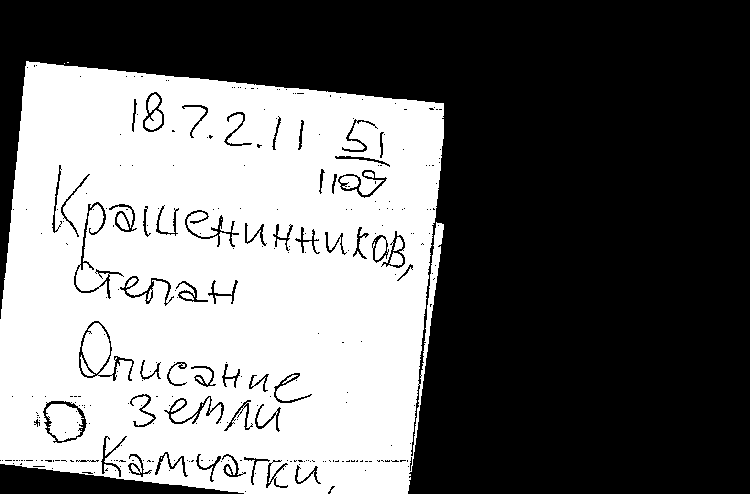 18.7.2.11 51
Крашенинников,
Степан
Описание
земли
Камчатки,